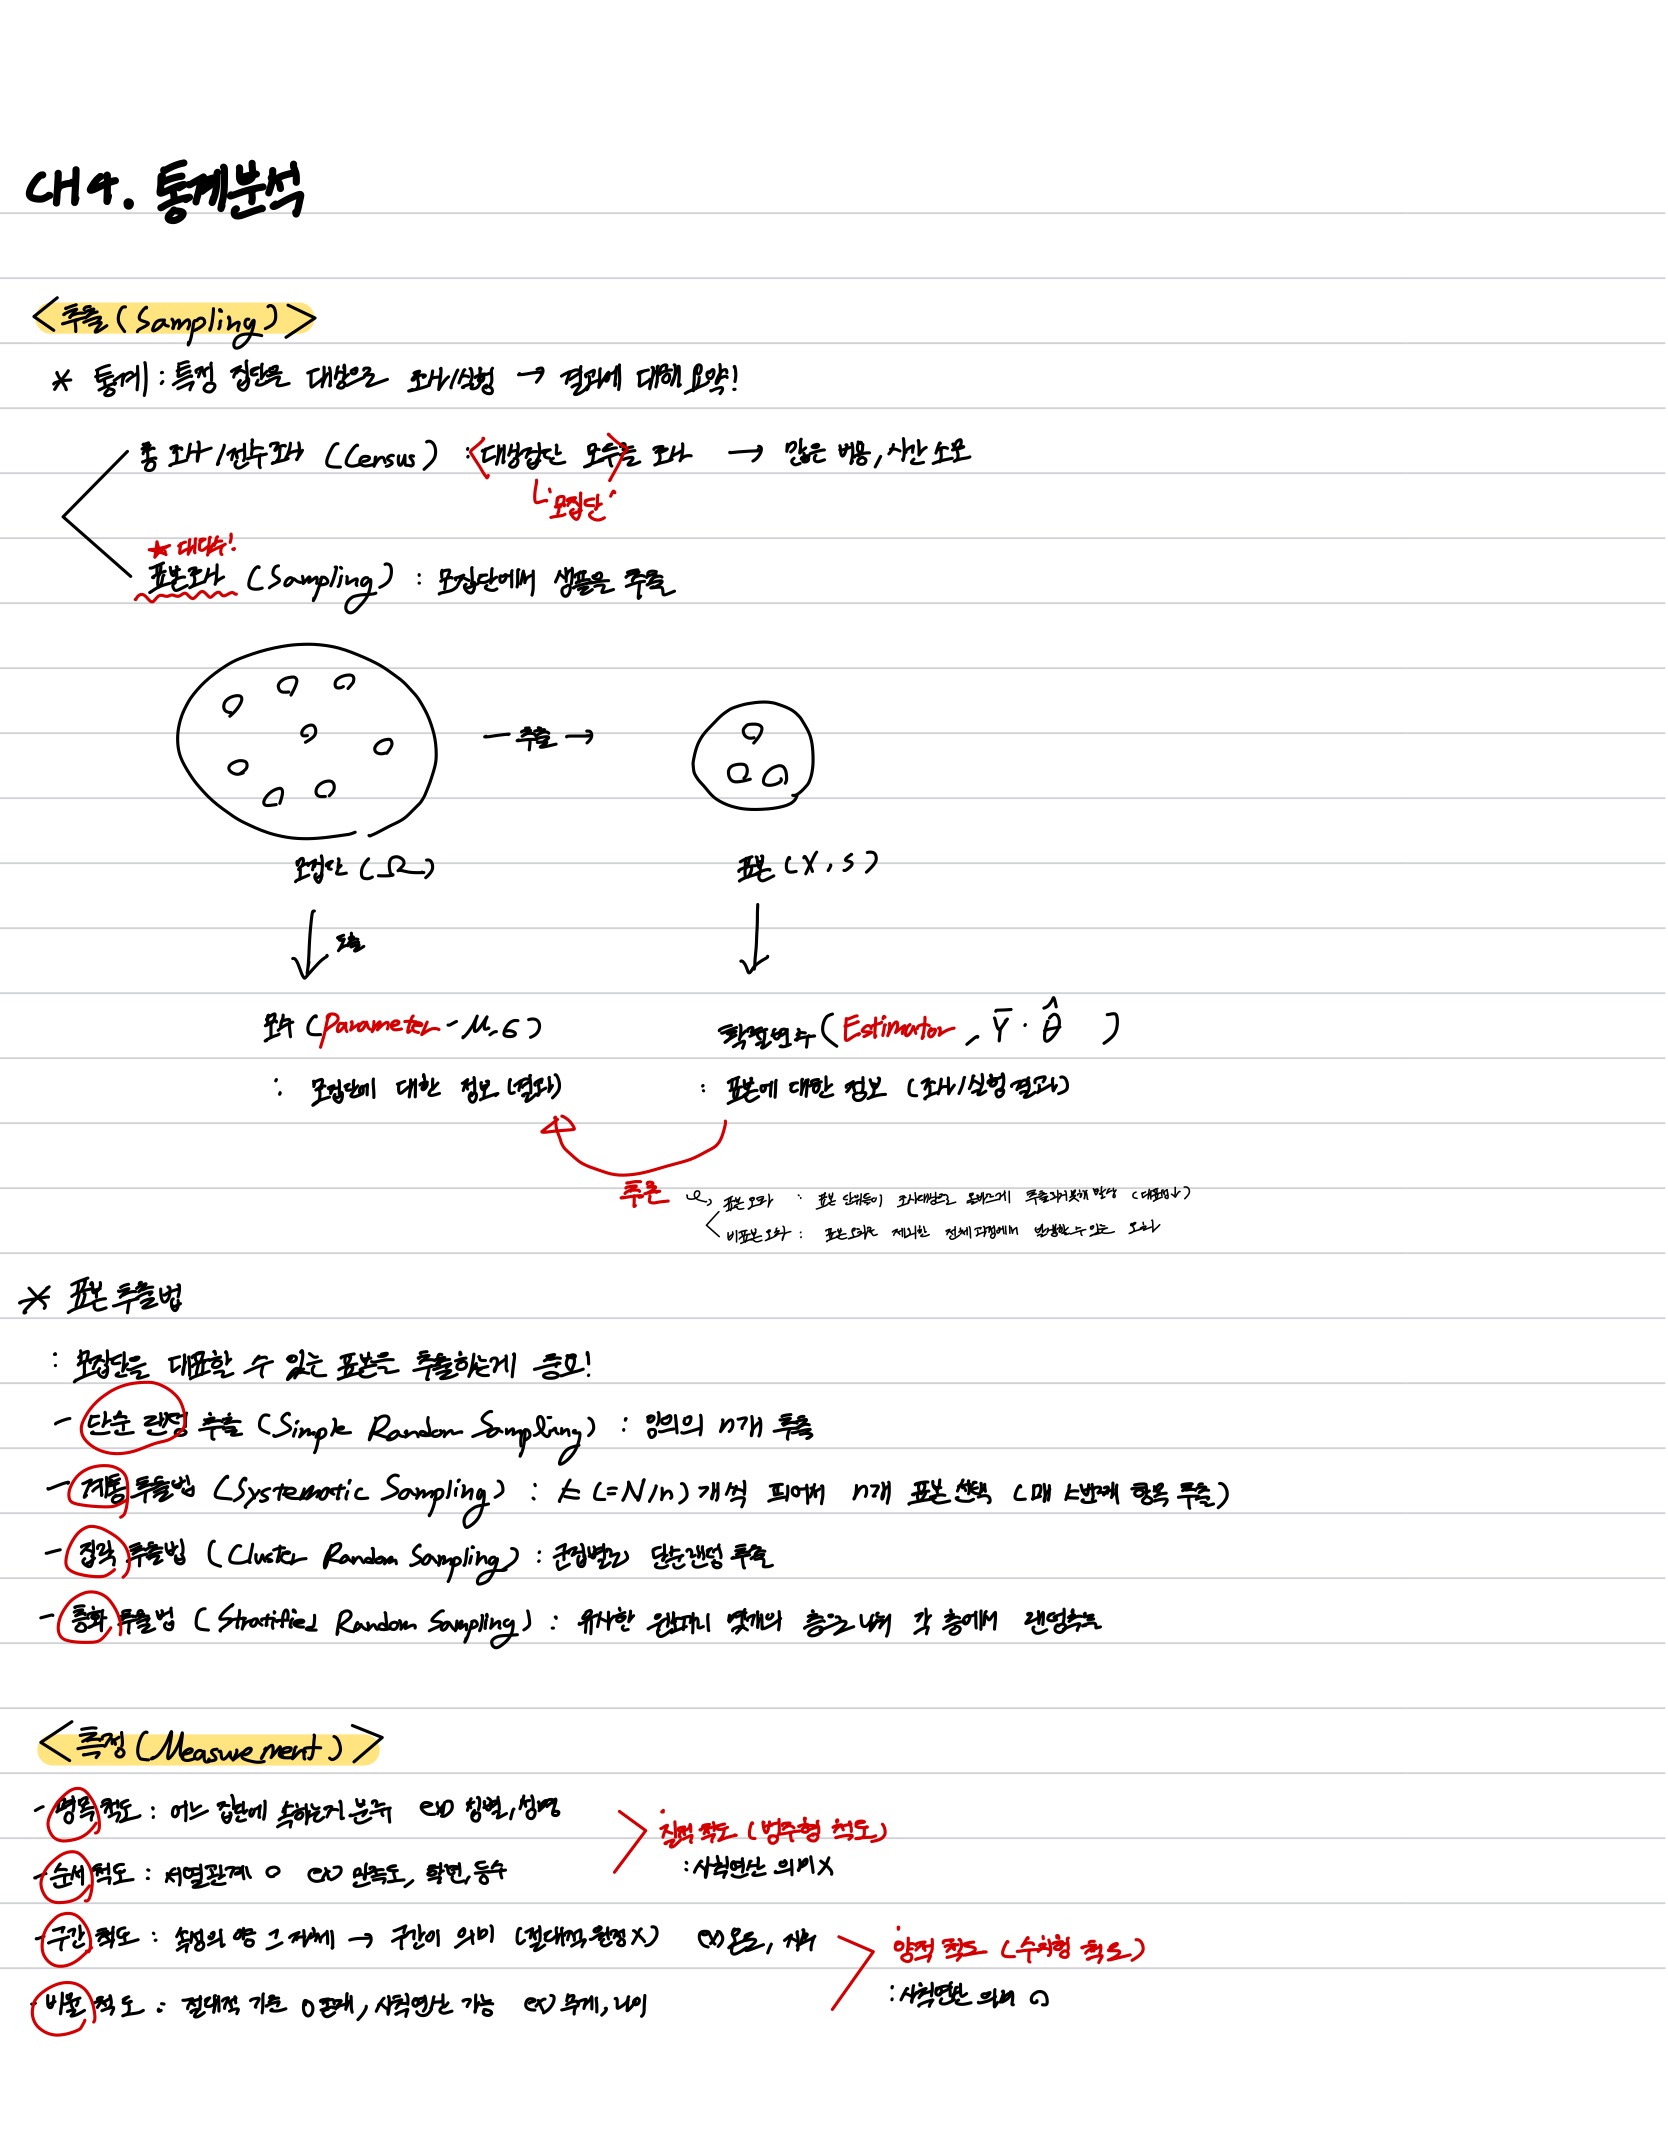 CH4. 통계분석
<추출(Sampling)>
* 통계 : 특정 집단을 대상으로 조사/실험 → 결과에 대해 요약!
총 조사/전수조사 (Census) : <대상집단 모두>를 조사 → 많은 비용, 시간 소모
"모집단"
★ 대다수!
표본조사 (Sampling) : 모집단에서 샘플을 추출
— 추출 →
모집단 (Ω) 표본 (X, S)
도출
모수 (Parameter - μ, σ) 확률변수 (Estimator, Ȳ · θ̂ )
: 모집단에 대한 정보 (결과) : 표본에 대한 정보 (조사/실험결과)
추론
표본오차 : 표본 단위들이 조사대상으로 올바르게 추출되지 못해 발생 (대표성↓)
비표본오차 : 표본오차를 제외한 전체과정에서 발생할 수 있는 오차
* 표본 추출법
: 모집단을 대표할 수 있는 표본을 추출하는게 중요!
- 단순 랜덤 추출 (Simple Random Sampling) : 임의의 n개 추출
- 계통 추출법 (Systematic Sampling) : k (=N/n) 개씩 띄어서 n개 표본 선택 (매 k번째 항목 추출)
- 집락 추출법 (Cluster Random Sampling) : 군집별로 단순랜덤 추출
- 층화 추출법 (Stratified Random Sampling) : 유사한 원소끼리 몇개의 층으로 나눠 각 층에서 랜덤추출
<측정(Measurement)>
- 명목 척도 : 어느 집단에 속하는지 분류 ex) 성별, 성명
질적 척도 (범주형 척도)
- 순서 척도 : 서열관계 O ex) 만족도, 학년, 등수
: 사칙연산 의미 X
- 구간 척도 : 속성의 양 그 자체 → 구간이 의미 (절대적 원점 X) ex) 온도, 지수
양적 척도 (수치형 척도)
- 비율 척도 : 절대적 기준 0 존재, 사칙연산 가능 ex) 무게, 나이
: 사칙연산 의미 O